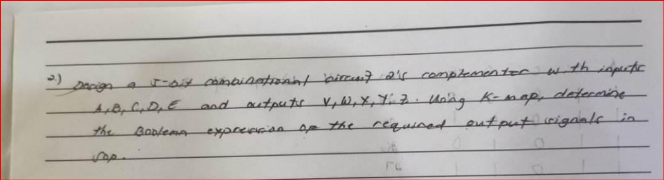 2.) Design a 5-bit combinational circuit 2's complementer with inputs
A, B, C, D, E and outputs V, W, X, Y, Z. Using K-map, determine
the Boolean expression of the required output signals in
SOP.